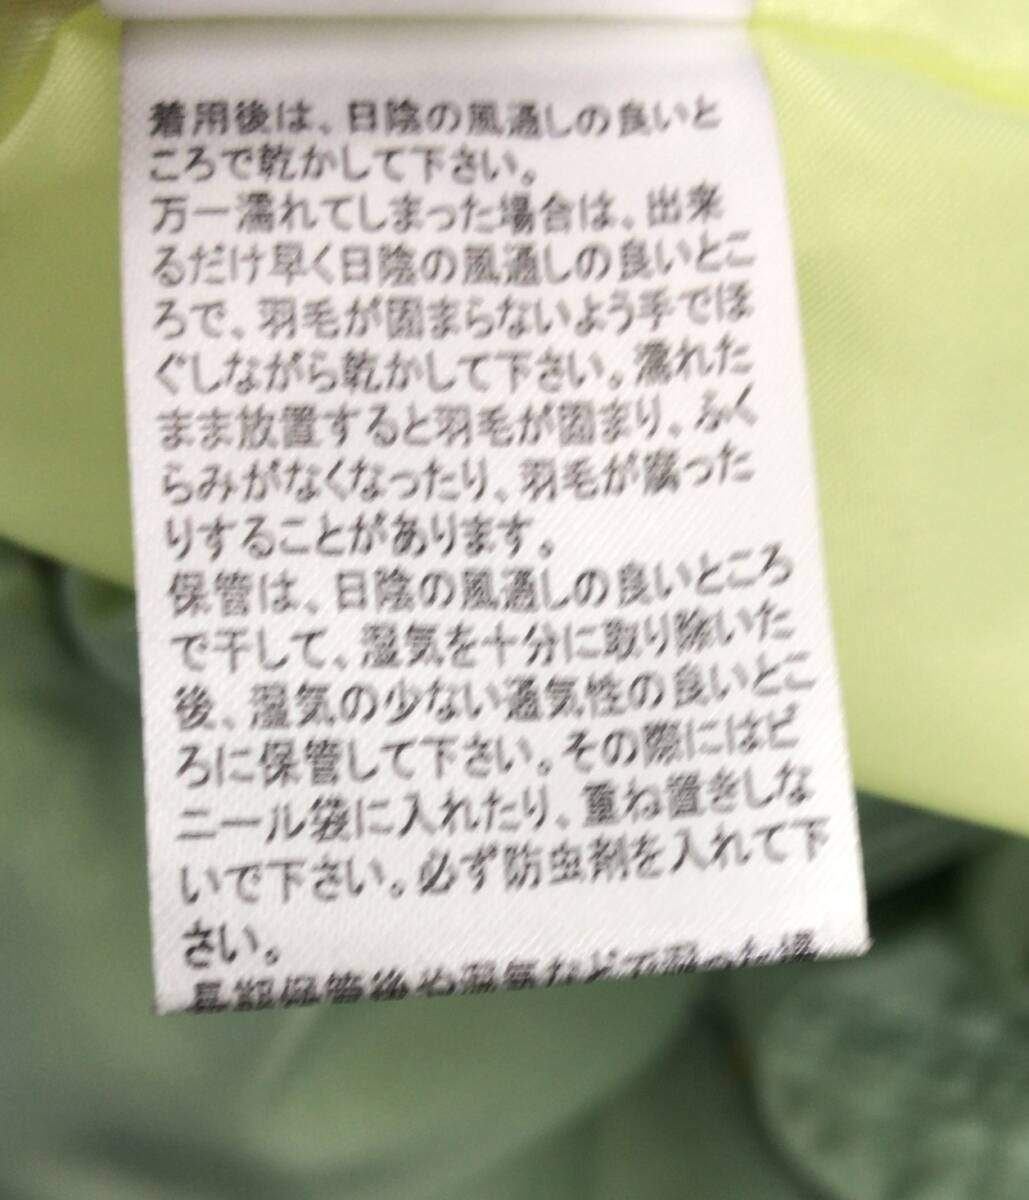 着用後は、日陰の風通しの良いと
ころで乾かして下さい。
万一濡れてしまった場合は、出来
るだけ早く日陰の風通しの良いとこ
ろで、羽毛が固まらないよう手でほ
ぐしながら乾かして下さい。濡れた
まま放置すると羽毛が固まり、ふく
らみがなくなったり、羽毛が腐った
りすることがあります。
保管は、日陰の風通しの良いところ
で干して、湿気を十分に取り除いた
後、湿気の少ない通気性の良いとこ
ろに保管して下さい。その際にはビ
ニール袋に入れたり、重ね置きしな
いで下さい。必ず防虫剤を入れて下
さい。
長期保管後や湿気などで湿った場